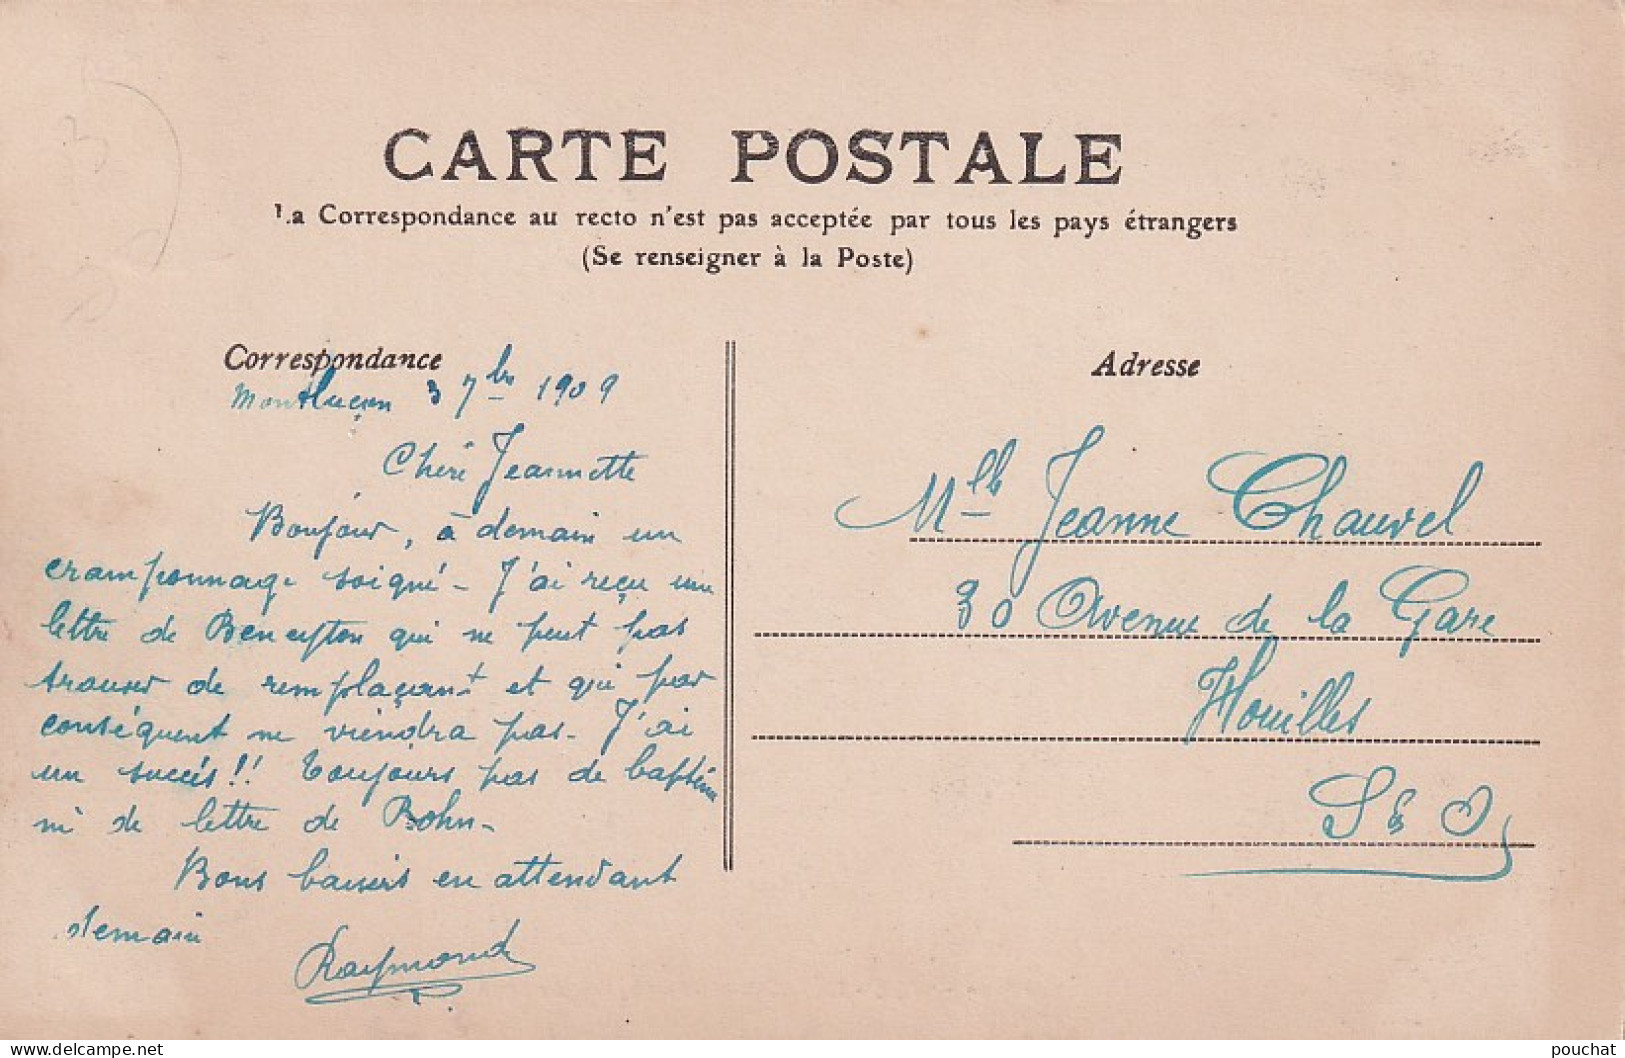 CARTE POSTALE
La Correspondance au recto n'est pas acceptée par tous les pays étrangers
(Se renseigner à la Poste)
Correspondance
Montluçon 3 7bre 1909
Chère Jeannette
Bonjour, à demain un
cramponnage soigné - J'ai reçu une
lettre de qui ne peut pas
trouver de remplaçant et qui par
conséquent ne viendra pas - J'ai
un succès!! Toujours pas de baptême
ni de lettre de Bohn -
Bons baisers en attendant
demain
Raymond
Adresse
Mlle Jeanne Chauvel
30 Avenue de la Gare
Houilles
S & O
pouchat